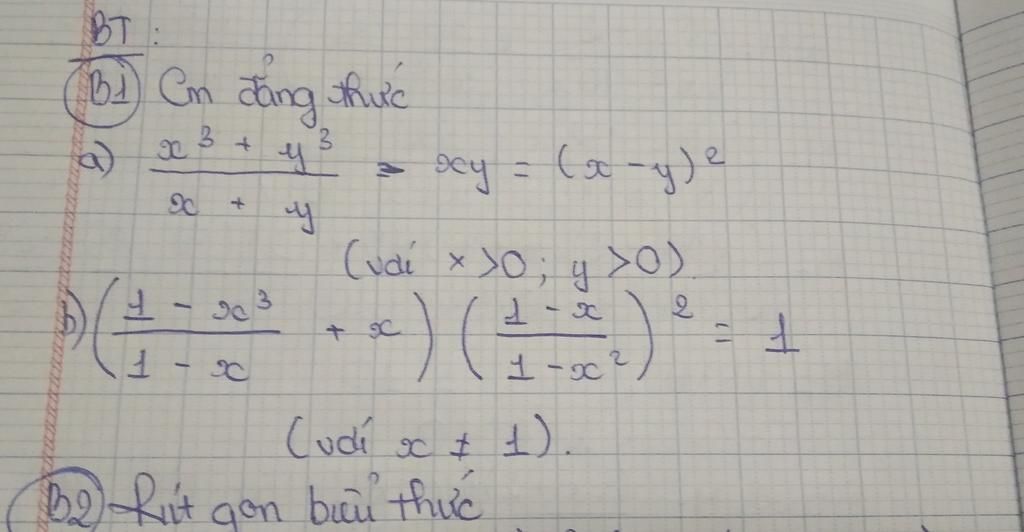 BT:
B1 Cm đẳng thức
a) \frac{x^3 + y^3}{x + y} - xy = (x - y)^2
(với x > 0; y > 0).
b) \left(\frac{1 - x^3}{1 - x} + x\right) \left(\frac{1 - x}{1 - x^2}\right)^2 = 1
(với x ≠ 1).
B2 Rút gọn biểu thức